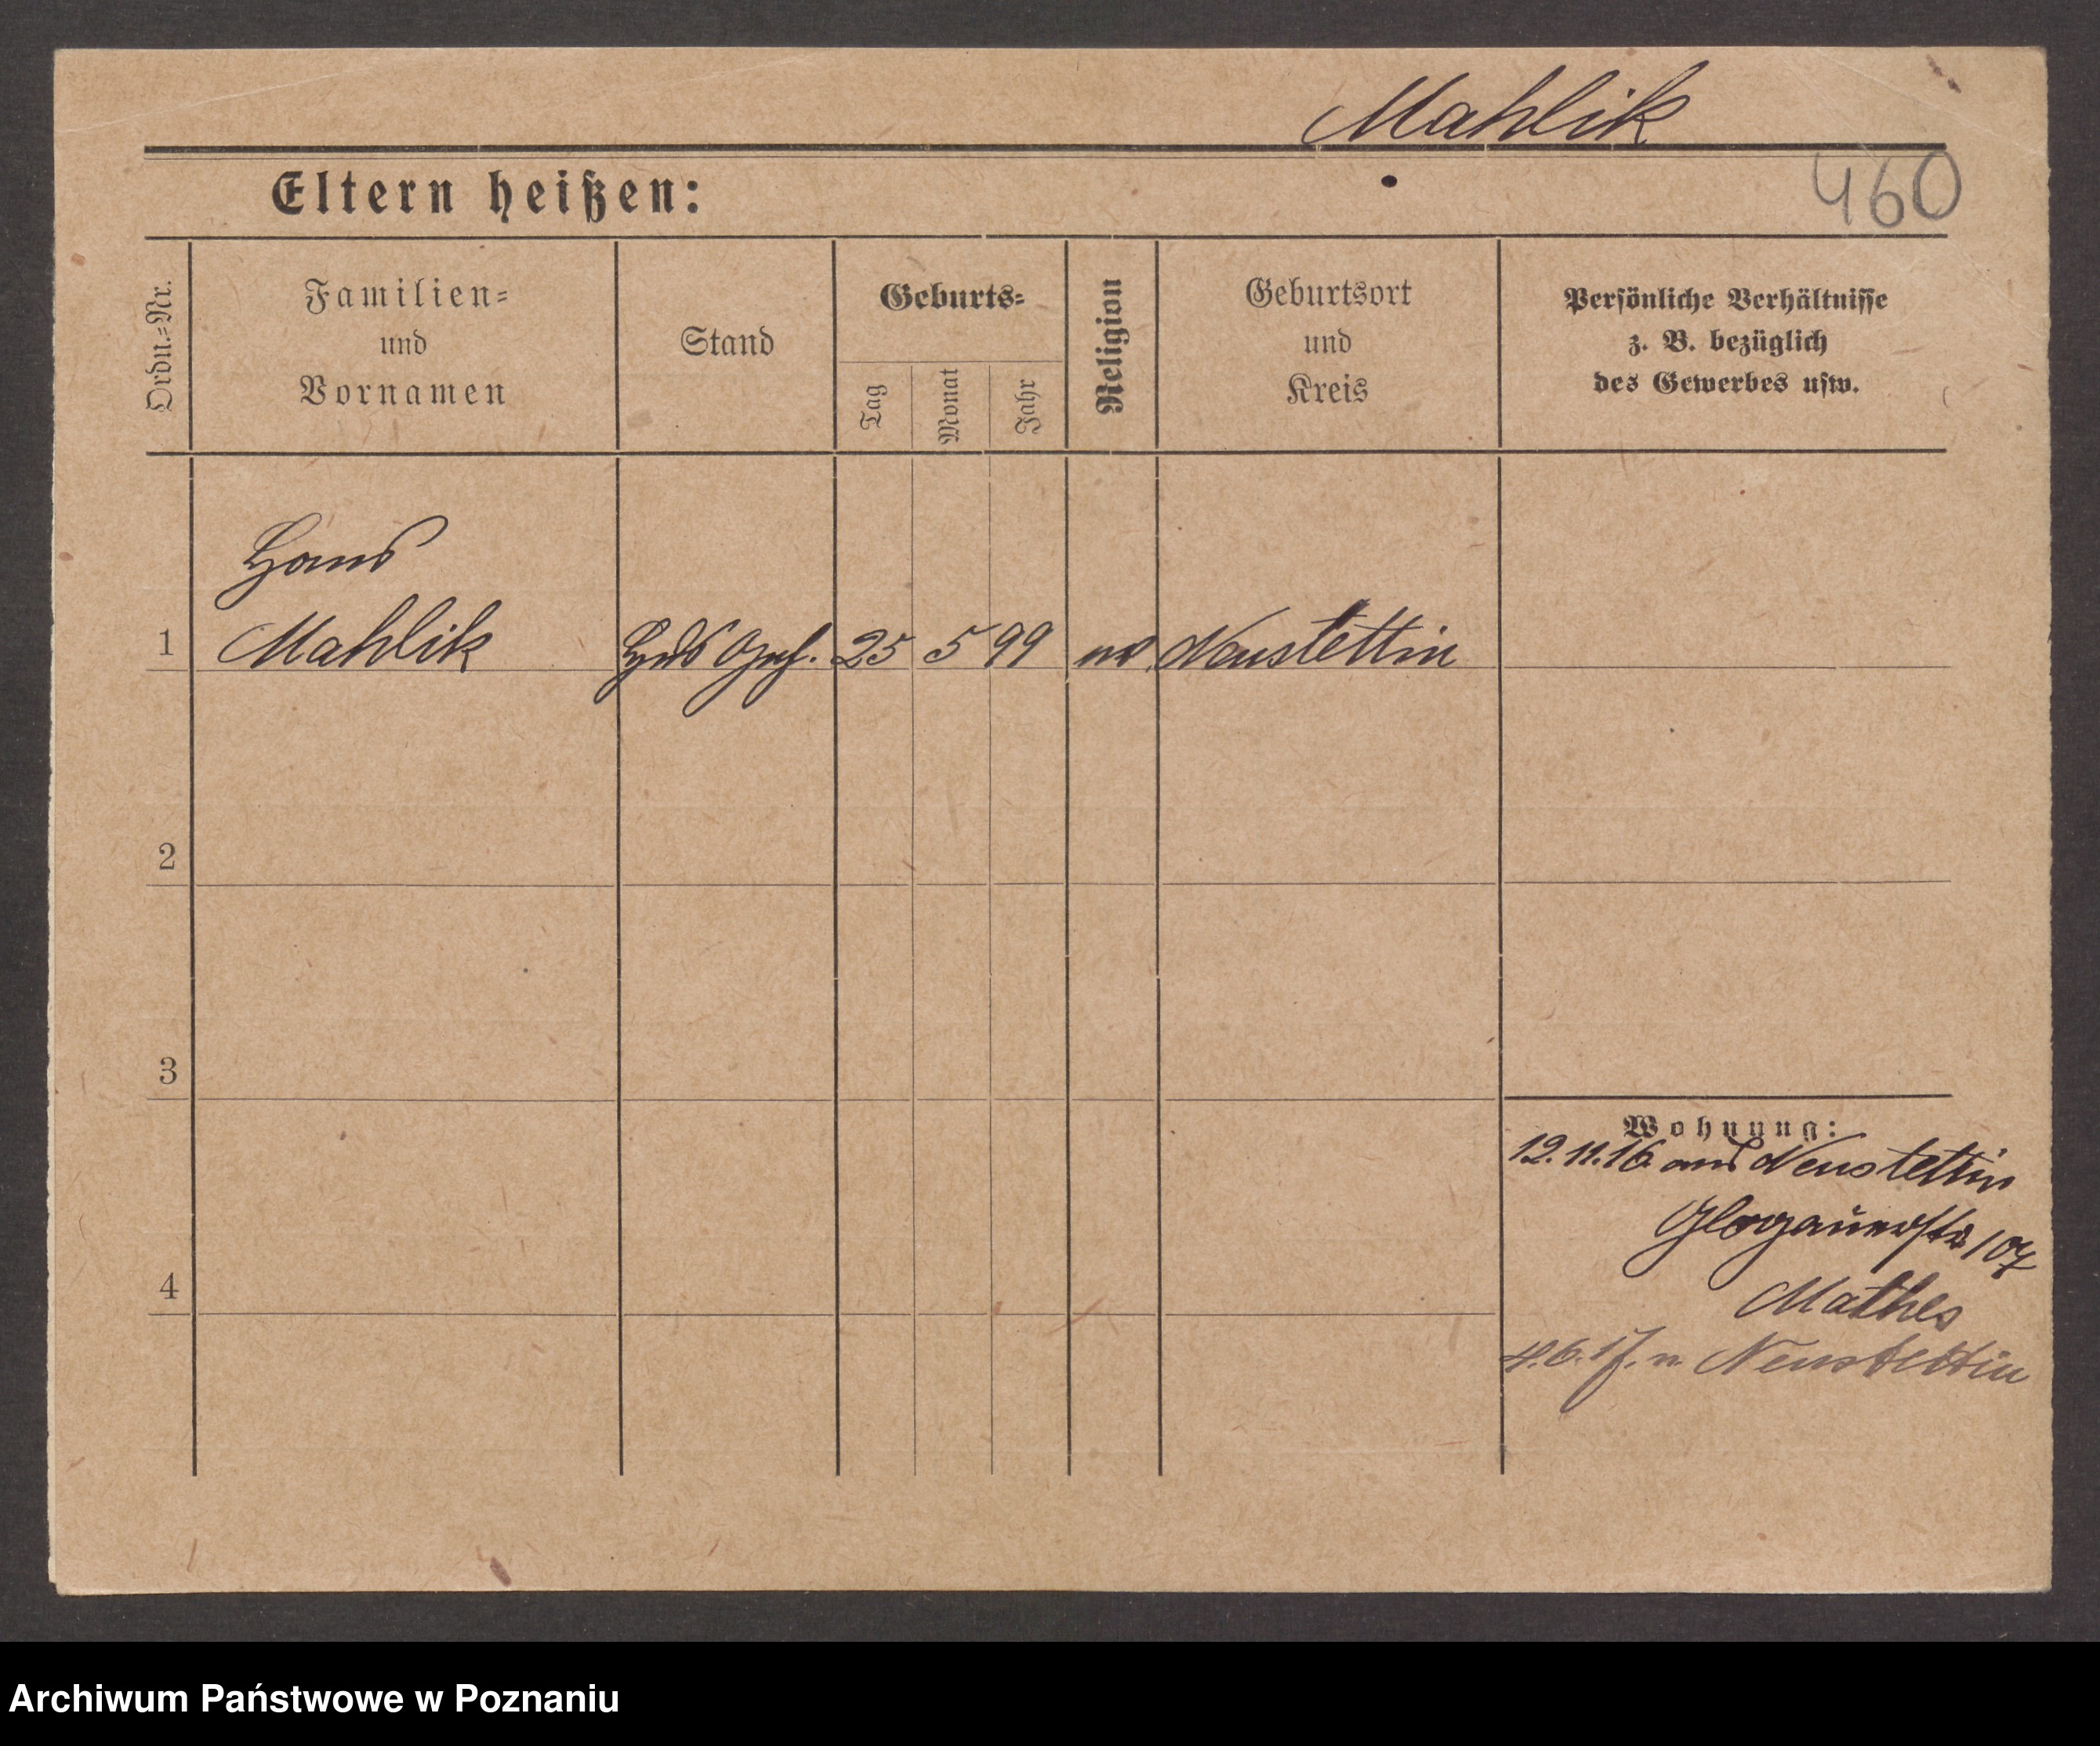 Mahlik
460
Eltern heißen:
Ordn.=Nr.
Familien=
und
Vornamen
Stand
Geburts=
Tag
Monat
Jahr
Religion
Geburtsort
und
Kreis
Persönliche Verhältnisse
z. B. bezüglich
des Gewerbes usw.
Hans
1 Mahlik 25 5 99 ev. Neustettin
2
3
4
Wohnung:
12.11.16 aus Neustettin
Glogauerstr 107
Mathes
4.6.17. n. Neustettin
Archiwum Państwowe w Poznaniu